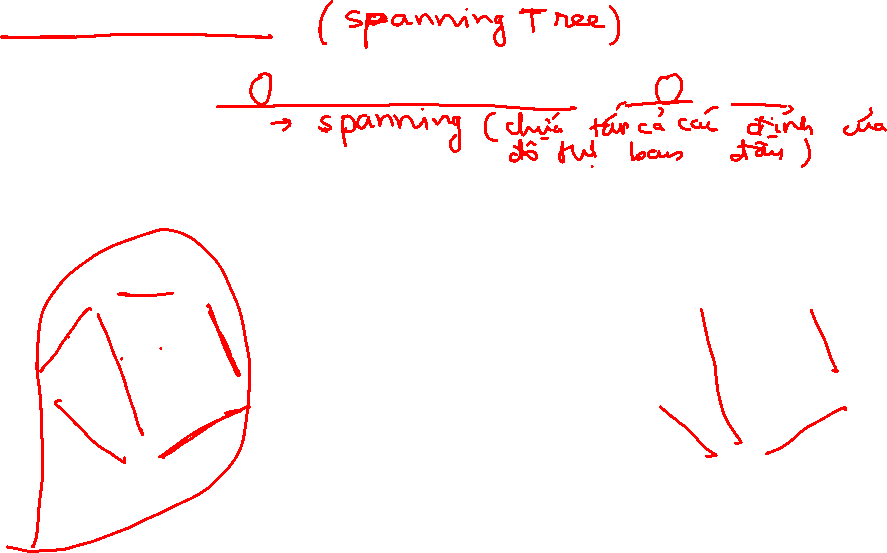 (Spanning Tree)
→ spanning (chứa tất cả các đỉnh của
đồ thị ban đầu)